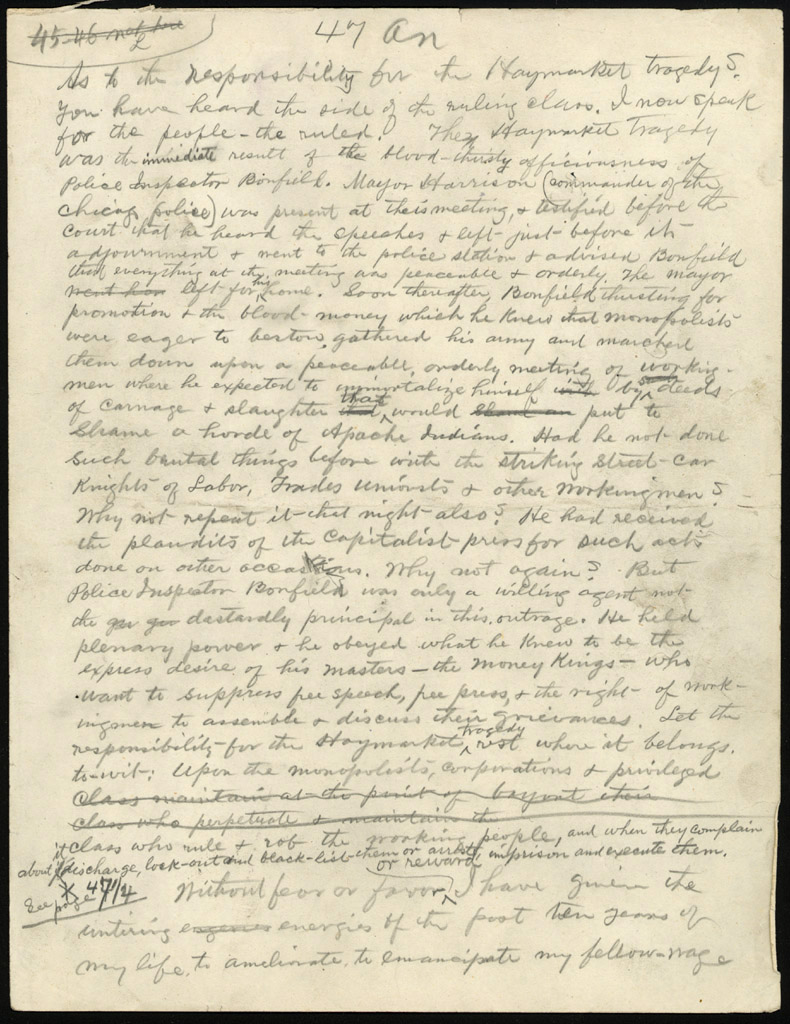 45-46 not here
2
47 An
As to the responsibility for the Haymarket tragedy?
You have heard the side of the ruling class. I now speak
for the people - the ruled. They Haymarket Tragedy
was the immediate result of the blood-thirsty officiousness of
Police Inspector Bonfield. Mayor Harrison (commander of the
Chicago police) was present at this meeting, & testified before the
Court that he heard the speeches & left just before its
adjournment & went to the police station & advised Bonfield
that everything at the meeting was peaceable & orderly. The mayor
went hom left for his home. Soon thereafter, Bonfield thirsting for
promotion & the blood-money which he knew that monopolists
were eager to bestow gathered his army and marched
them down upon a peaceable, orderly meeting of working-
men where he expected to immortalize himself by deeds
of carnage & slaughter that would put to
shame a horde of Apache Indians. Had he not done
such brutal things before with the striking Street-car
Knights of Labor, Trades unionists & other workingmen?
Why not repeat it that night also? He had received
the plaudits of the capitalist press for such acts
done on other occasions. Why not again? But
Police Inspector Bonfield was only a willing agent not
the dastardly principal in this outrage. He held
plenary power & he obeyed what he knew to be the
express desire of his masters - the money Kings - who
want to suppress free speech, free press, & the right of work-
ingmen to assemble & discuss their grievances. Let the
responsibility for the Haymarket tragedy rest where it belongs.
to-wit: Upon the monopolists, corporations & privileged
class maintain at the point of bayonet their
class who perpetuate & maintains the
class who rule & rob the working people, and when they complain
about it discharge, lock-out and black-list them or arrest, imprison and execute them.
See page X 47 1/2
Without fear or favor or reward, I have given the
untiring energies of the past ten years of
my life, to ameliorate, to emancipate my fellow-wage